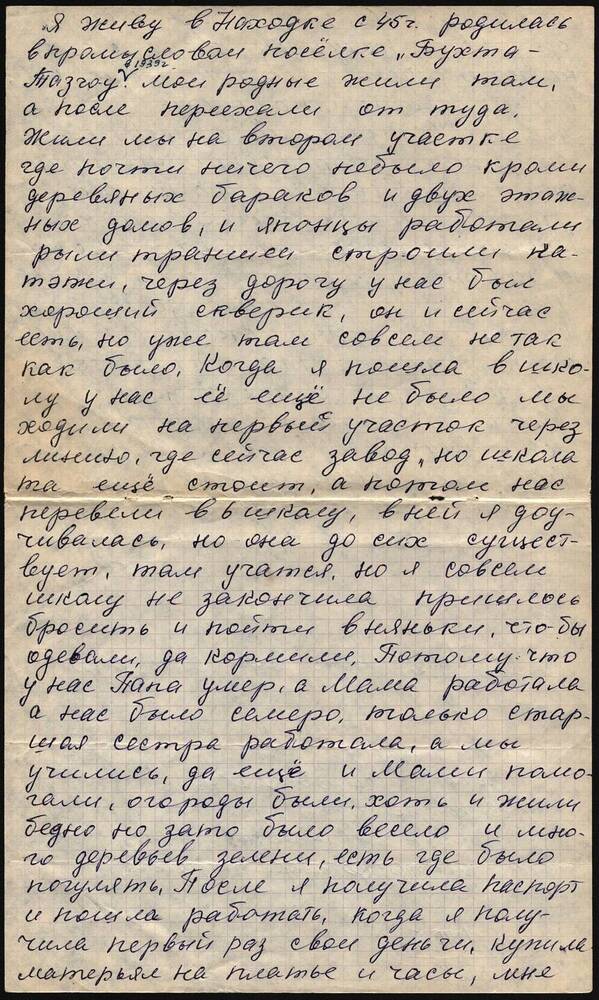 Я живу в Находке с 45 г. родилась
в промысловом посёлке „Бухта-
в 1939 г
Тазгоу". мои родные жили там,
а после переехали от туда.
Жили мы на втором участке
где почти ничего небыло кроми
деревяных бараков и двух этаж-
ных домов, и японцы работали
рыли траншеи строили ка-
тэжи, через дорогу у нас был
хороший скверик, он и сейчас
есть, но уже там совсем не так
как было, Когда я пошла в шко-
лу у нас её ещё не было мы
ходили на первый участок через
линию, где сейчас завод, но школа
та ещё стоит, а потом нас
перевели в 6 школу, в ней я доу-
чивалась, но она до сих сущест-
вует, там учатся, но я совсем
школу не закончила пришлось
бросить и пойти в няньки, что-бы
одевали, да кормили, Потому-что
у нас Папа умер, а Мама работала
а нас было семеро, только стар-
шая сестра работала, а мы
учились, да ещё и Мами помо-
гали, огороды были, хоть и жили
бедно но зато было весело и мно-
го деревьев зелени, есть где было
погулять, После я получила паспорт
и пошла работать, когда я полу-
чила первый раз свои деньги, купила
матерьял на платье и часы, мне